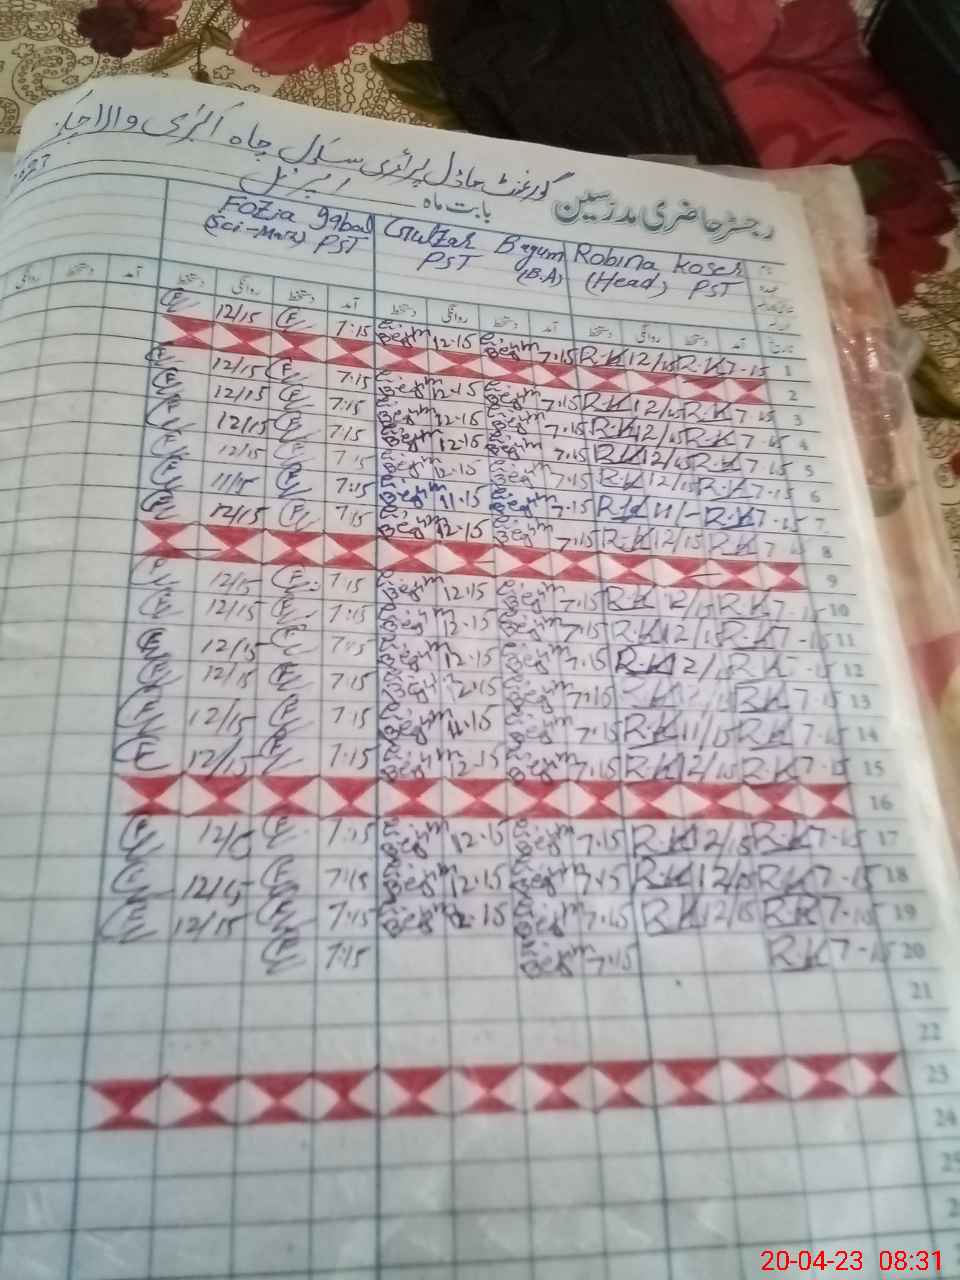 گورنمنٹ ماڈل پرائمری سکول چاہ اکبری والا
رجسٹر حاضری مدرسین
بابت ماہ اپریل
Fozia Iqbal
(Sci-Math) PST
Gulzar Bagum
PST (B.A)
Robina Koser
(Head) PST
روانگی دستخط آمد دستخط روانگی دستخط آمد دستخط روانگی دستخط آمد دستخط روانگی دستخط آمد تاریخ
12/15 7:15 Begum 12.15 Begum 7.15 R.K 12/15 R.K 7-15 1
2
12/15 7:15 Begum 12.15 Begum 7.15 R.K 12/15 R.K 7-15 3
12/15 7:15 Begum 12.15 Begum 7.15 R.K 12/15 R.K 7-15 4
12/15 7:15 Begum 12.15 Begum 7.15 R.K 12/15 R.K 7-15 5
12/15 7:15 Begum 12.15 Begum 7.15 R.K 12/15 R.K 7-15 6
11/15 7:15 Begum 11.15 Begum 7.15 R.K 11/- R.K 7-15 7
12/15 7:15 Begum 12.15 Begum 7.15 R.K 12/15 R.K 7-15 8
9
12/15 7:15 Begum 12.15 Begum 7.15 R.K 12/15 R.K 7-15 10
12/15 7:15 Begum 12.15 Begum 7.15 R.K 12/15 R.K 7-15 11
12/15 7:15 Begum 12.15 Begum 7.15 R.K 12/ R.K 7-15 12
12/15 7:15 Begum 12.15 Begum 7.15 R.K R.K 7-15 13
12/15 7:15 Begum 11.15 Begum 7.15 R.K 11/15 R.K 7-15 14
12/15 7:15 Begum 12.15 Begum 7.15 R.K 12/15 R.K 7-15 15
16
7:15 Begum 12.15 Begum 7.15 R.K 12/15 R.K 7-15 17
12/15 7:15 Begum 12.15 Begum 7.15 R.K 12/15 R.K 7-15 18
12/15 7:15 Begum 12.15 Begum 7.15 R.K 12/15 R.K 7-15 19
7:15 Begum 7.15 R.K 7-15 20
21
22
23
24
25
20-04-23 08:31